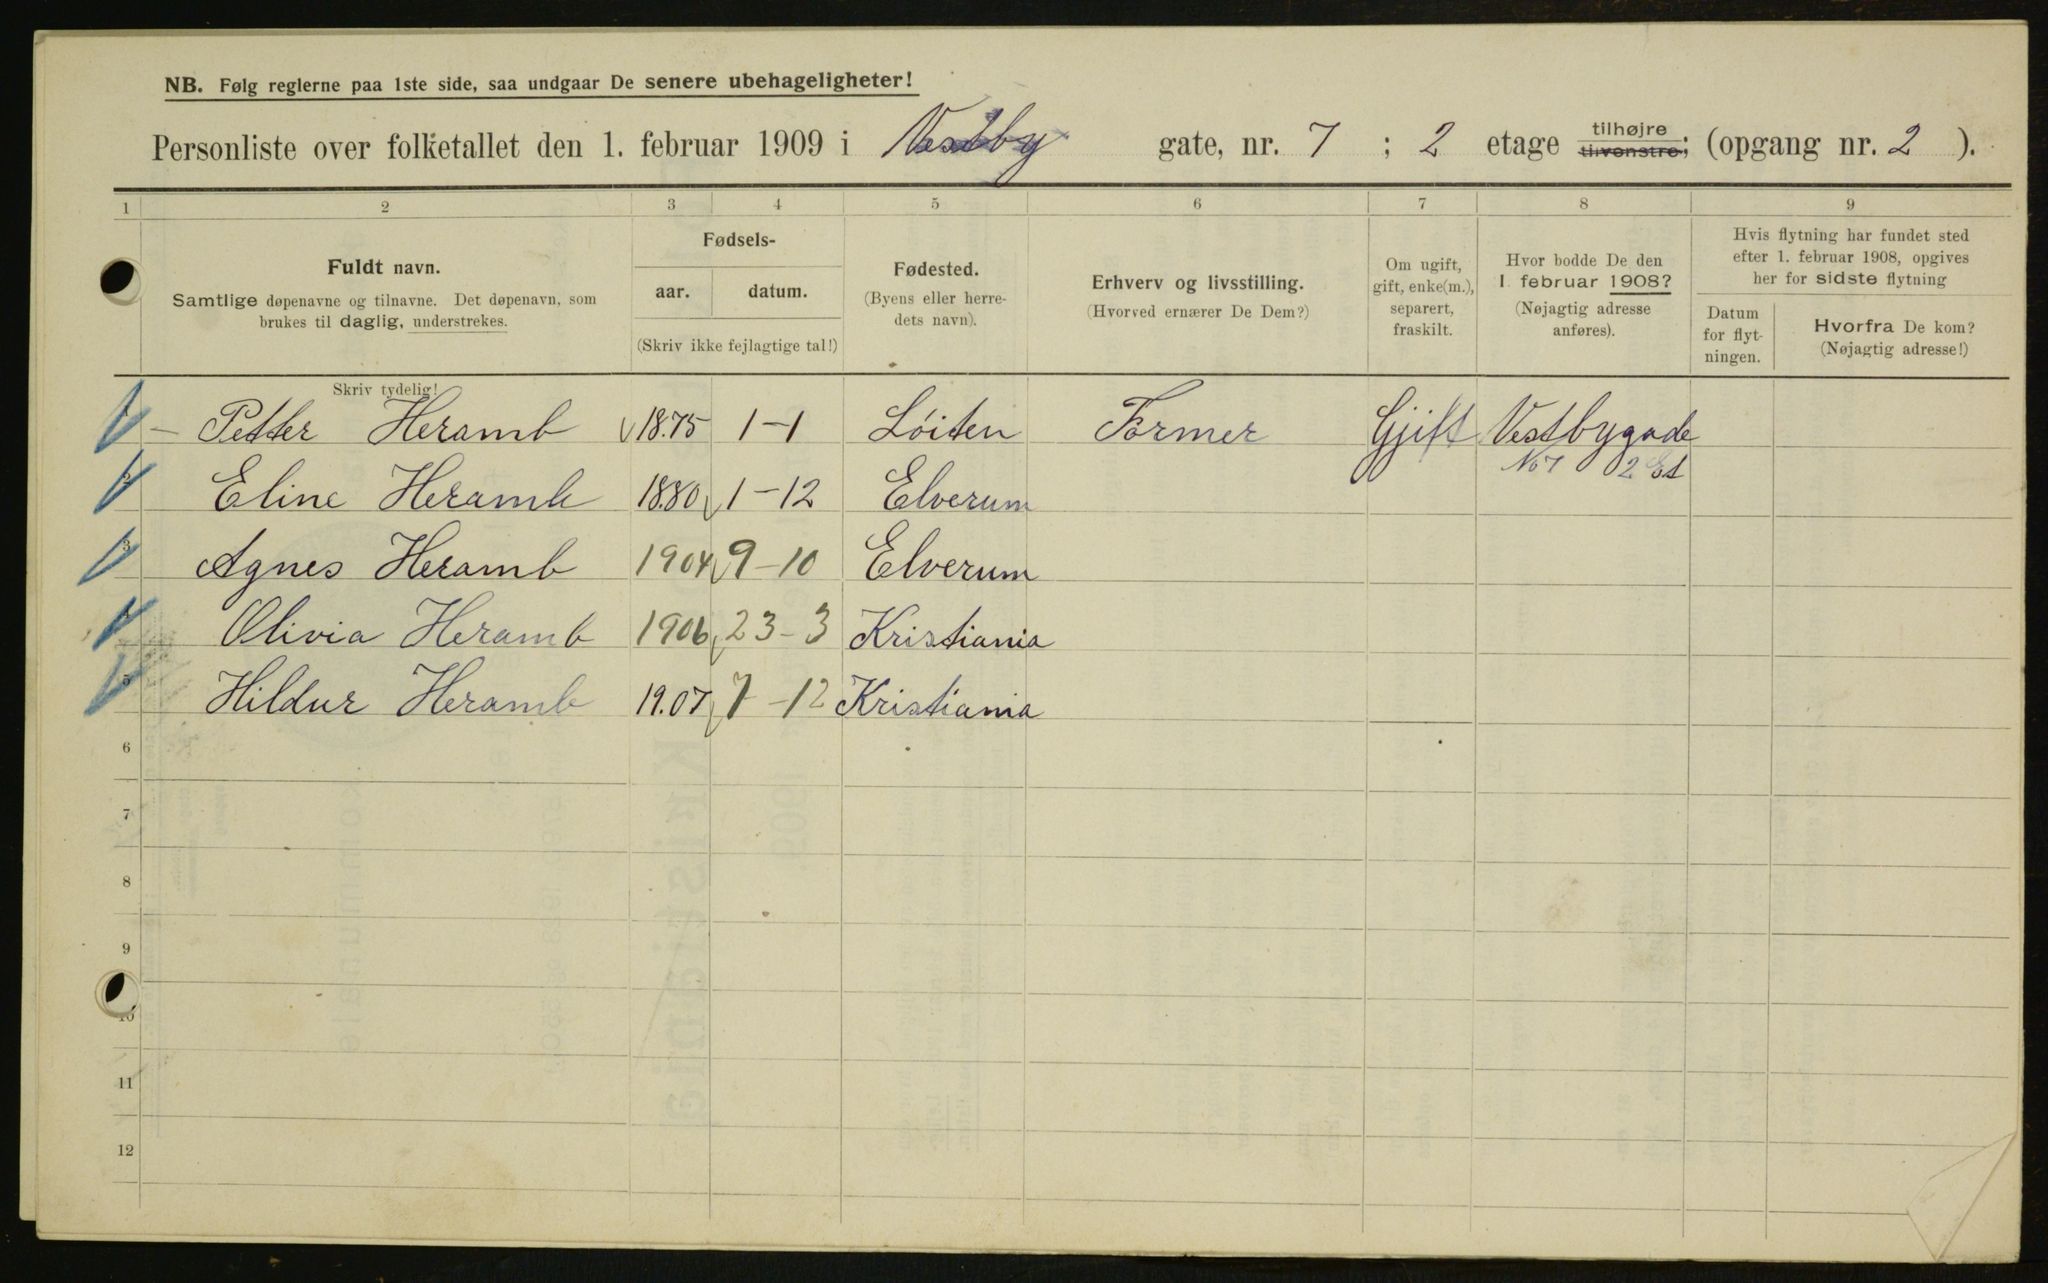 NB. Følg reglerne paa 1ste side, saa undgaar De senere ubehageligheter!
Personliste over folketallet den 1. februar 1909 i Vestby gate, nr. 7 ; 2 etage tilhøjre tilvenstre; (opgang nr. 2 ).
1 2 3 4 5 6 7 8 9
Fuldt navn.
Samtlige døpenavne og tilnavne. Det døpenavn, som
brukes til daglig, understrekes.
Skriv tydelig!
Fødsels-
aar. datum.
(Skriv ikke fejlagtige tal!)
Fødested.
(Byens eller herre-
dets navn).
Erhverv og livsstilling.
(Hvorved ernærer De Dem?)
Om ugift,
gift, enke(m.),
separert,
fraskilt.
Hvor bodde De den
1. februar 1908?
(Nøjagtig adresse
anføres).
Hvis flytning har fundet sted
efter 1. februar 1908, opgives
her for sidste flytning
Datum
for flyt-
ningen.
Hvorfra De kom?
(Nøjagtig adresse!)
1 Petter Heramb 18.75 1-1 Löiten Former Gjift Vestbygade
No 7 2 Et
2 Eline Heramb 18.80 1-12 Elverum
3 Agnes Heramb 1904 9-10 Elverum
4 Olivia Heramb 1906 23-3 Kristiania
5 Hildur Heramb 19.07 7-12 Kristiania
6
7
8
9
10
11
12